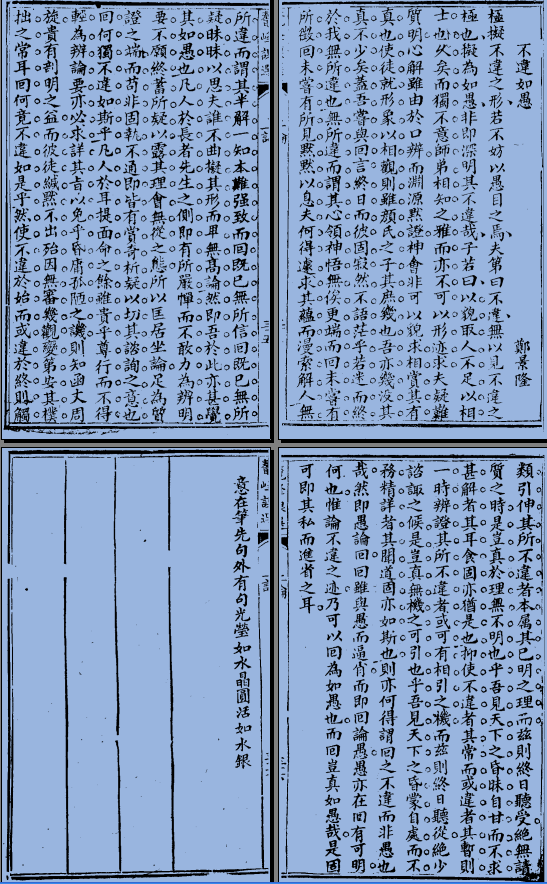 不違如愚
鄭景隆
極擬不違之形若不妨以愚目之焉夫第曰不違無以見不違之
極也擬為如愚非即深明其不違哉子若曰以貌取人不足以相
士也久矣而獨不意師弟相知之雅而亦不可以形迹求夫疑難
質明心解難由於口辨而淵源默證神會非可以貌求相賞其有
真也使徒就形象以相觀則雖顏氏之子其庶幾也吾亦幾没其
真不少矣蓋吾嘗與回言終日而彼固寂然不語茫乎若迷而終
於我無所違也無所違而謂其心領神悟無俟更端而回未嘗有
所徵回未嘗有所見默默以息夫何得遽求其蘊而漫索解人無
所違而謂其半解一知本難强致而回既已無所信回既已無所
疑昧昧以思夫誰不曲擬其形而畢無高論然即吾於此亦其覺
其如愚也凡人於長者先生之側即有所嚴憚而不敢力為辨明
要不願終蓄所疑以露其理會無從之態所以匡居坐論足為質
證之端而苟非固執不通即皆有賞奇析疑以切其諮詢之意也
回何獨不違如斯乎凡人於耳提面命之餘雖貴乎尊行而不得
輕為辯論要亦必求詳其旨以免乎昏庸孤陋之譏則知函丈周
旋貴有剖明之益而彼徒緘默不出殆因無審幾觀變第安其樸
拙之常耳回何竟不違如是乎然使不違於始而或違於終則觸
類引伸其所不違者本屬其已明之理而兹則終日聽受絶無請
質之時是豈真於理無不明也乎吾見天下之昏昧自甘而不求
甚解者其耳食固亦猶是也抑使不違者其常而或違者其暫則
一時辨證其所不違者或可有相引之機而兹則終日聽從絶少
諮諏之候是豈真無機之可引也乎吾見天下之昏蒙自處而不
務精詳者其聞道固亦如斯也則亦何得謂回之不違而非愚也
哉然即愚論回回雖與愚而逼肖而即回論愚愚亦在回有可明
何也惟論不違之迹乃可以回為如愚也而回豈真如愚哉是固
可即其私而進省之耳
意在筆先句外有句光瑩如水晶圓活如水銀